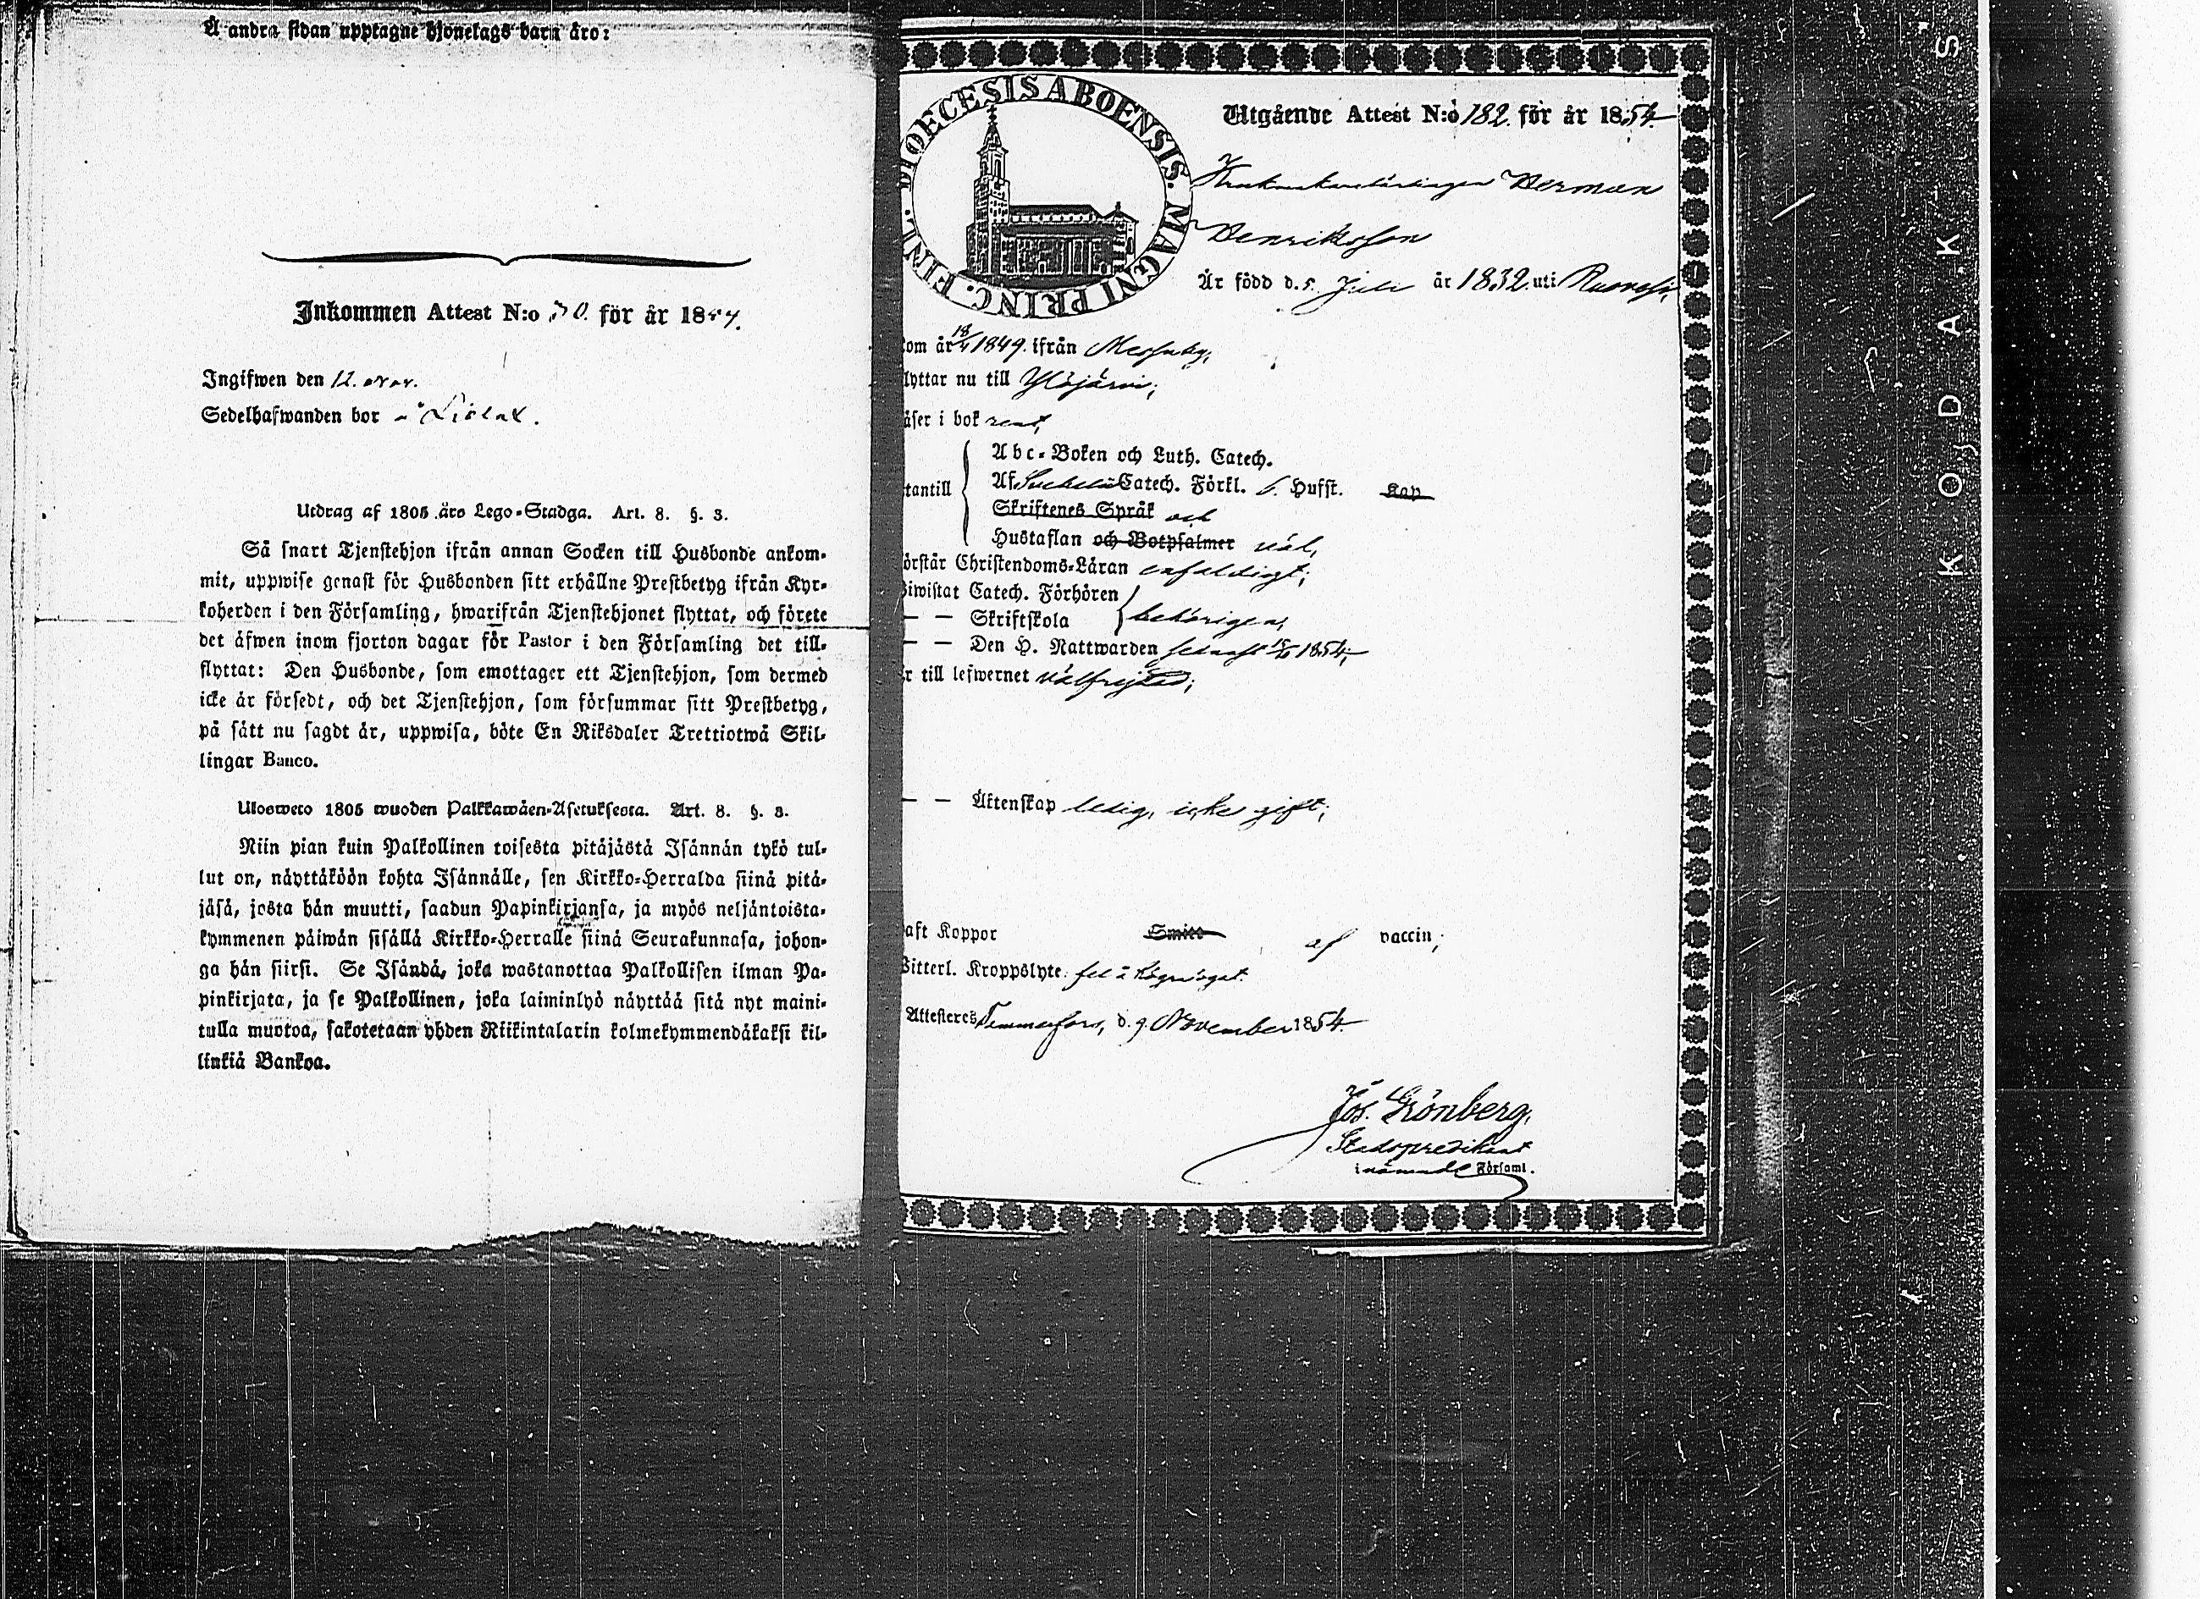 Å andra sidan upptagne hjonelags barn äro:
Inkommen Attest N:o 70. för år 1854.
Ingifwen den 12. nov.
Sedelhafwanden bor å
Utdrag af 1805 års Lego-Stadga. Art. 8. §. 3.
Så snart Tjenstehjon ifrån annan Socken till Husbonde ankom-
mit, uppwise genast för Husbonden sitt erhållne Prestbetyg ifrån Kyr-
koherden i den Församling, hwarifrån Tjenstehjonet flyttat, och förete
det äfwen inom fjorton dagar för Pastor i den Församling det till-
flyttat: Den Husbonde, som emottager ett Tjenstehjon, som dermed
icke är försedt, och det Tjenstehjon, som försummar sitt Prestbetyg,
på sätt nu sagdt är, uppwisa, böte En Riksdaler Trettiotwå Skil-
lingar Banco.
Ulosweto 1805 wuoden Palkkawäen-Asetuksesta. Art. 8. §. 3.
Niin pian kuin Palkollinen toisesta pitäjästä Isännän tykö tul-
lut on, näyttäköön kohta Isännälle, sen Kirkko-Herralda siinä pitä-
jäsä, josta hän muutti, saadun Papinkirjansa, ja myös neljäntoista-
kymmenen päiwän sisällä Kirkko-Herralle siinä Seurakunnasa, johon-
ga hän siirsi. Se Isändä, joka wastanottaa Palkollisen ilman Pa-
pinkirjata, ja se Palkollinen, joka laiminlyö näyttää sitä nyt maini-
tulla muotoa, sakotetaan yhden Riikintalarin kolmekymmendäkaksi kil-
linkiä Bankoa.
DIOECESIS ABOENSIS. MAGNI PRINC. FINL.
Utgående Attest N:o 182. för år 1854.
Krukmakarelärlingen Herman
Henriksson
Är född d. 5. Juli år 1832. uti Ruovesi,
kom år 18/4 1849. ifrån Messuby,
lyttar nu till Ylöjärvi;
äser i bok rent,
Abc-Boken och Luth. Catech.
tantill Af Svebelii Catech. Förkl. 6. Hufst. Kap
Skriftenes Språk och
Hustaflan och Botpsalmer väl,
örstår Christendoms-Läran enfaldigt;
Biwistat Catech. Förhören
— — Skriftskola behörigen,
— — Den H. Nattwarden senast 1854;
r till lefwernet välfrejdad;
— — Äktenskap ledig, icke gift;
aft Koppor Smitt af vaccin;
Witterl. Kroppslyte fel å högra ögat.
Attesteras Tammerfors, d. 9. November 1854.
Jos. Grönberg,
Stadspredikant
i nämnde Församl.
KODAK S